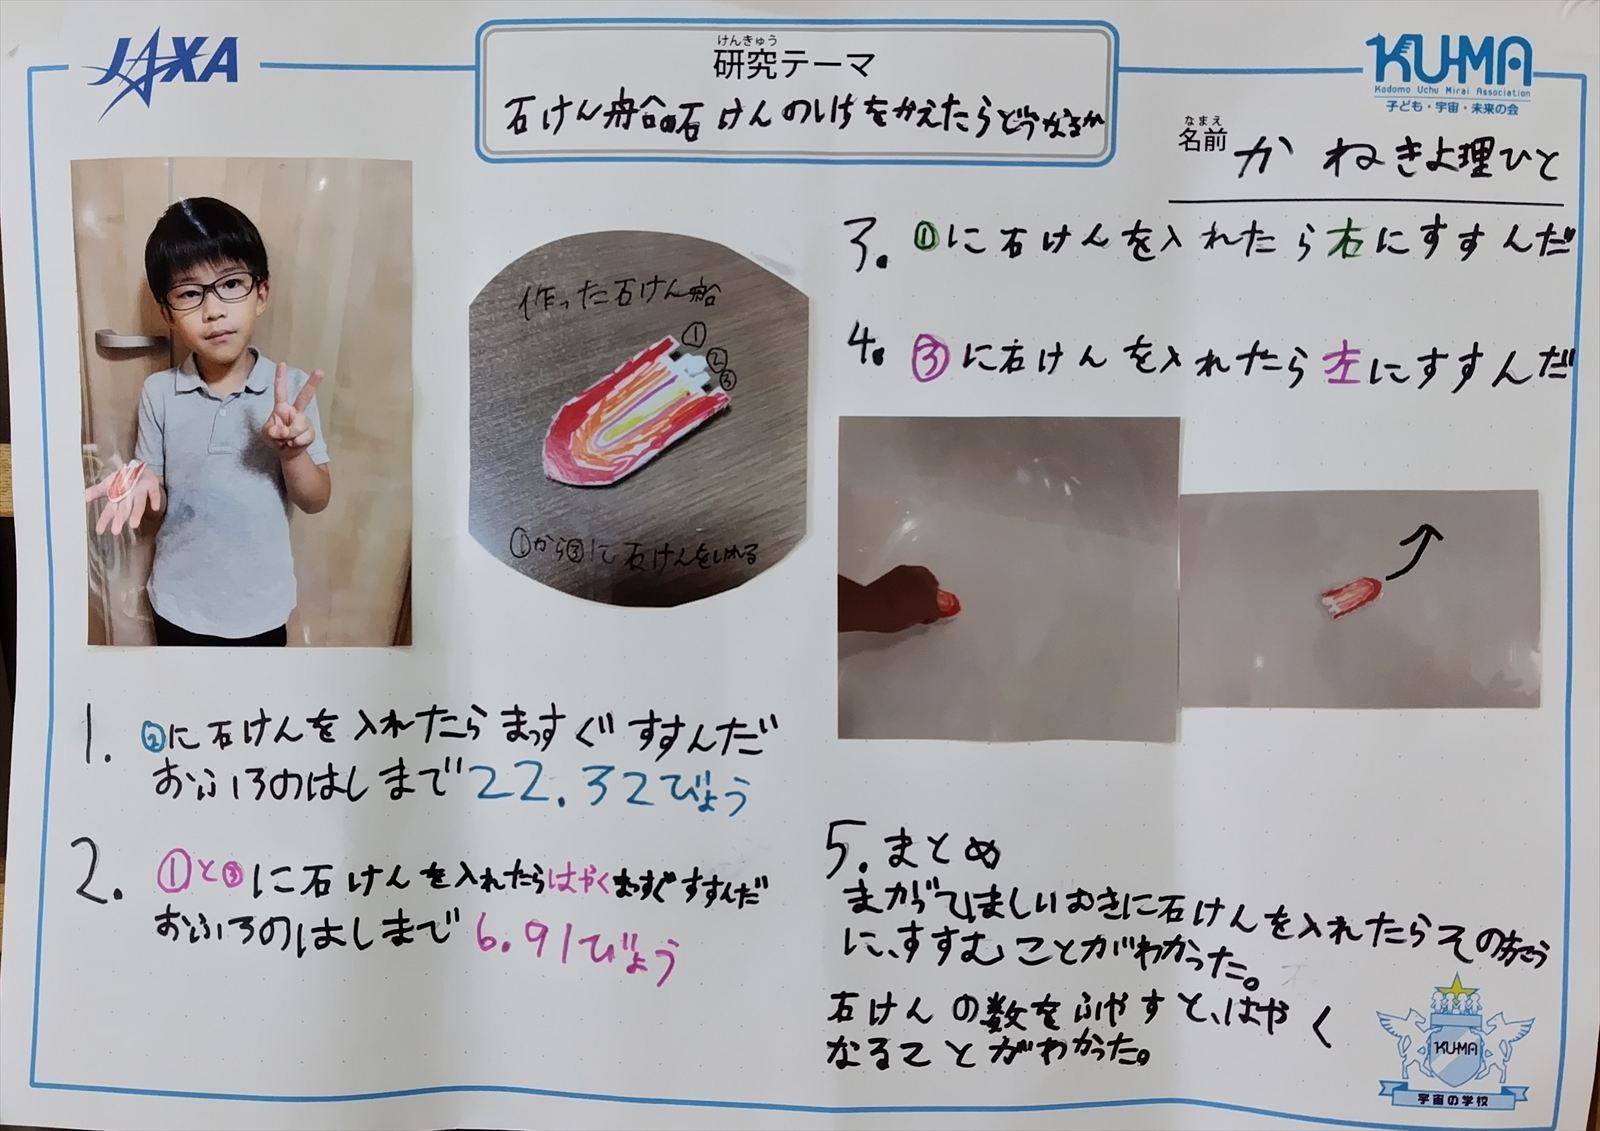 JAXA
けんきゅう
研究テーマ
石けん船の石けんのいちをかえたらどうなるか
KU-MA
Kodomo Uchu Mirai Association
子ども・宇宙・未来の会
なまえ
名前
かねきよ理ひと
作った石けん船
①
②
③
①から③に石けんをいれる
1. ②に石けんを入れたらまっすぐすすんだ
おふろのはしまで22.32びょう
2. ①と③に石けんを入れたらはやくまっすぐすすんだ
おふろのはしまで6.91びょう
3. ①に石けんを入れたら右にすすんだ
4. ③に石けんを入れたら左にすすんだ
5. まとめ
まがってほしいむきに石けんを入れたらその方こう
に、すすむことがわかった。
石けんの数をふやすと、はやく
なることがわかった。
KU-MA
宇宙の学校